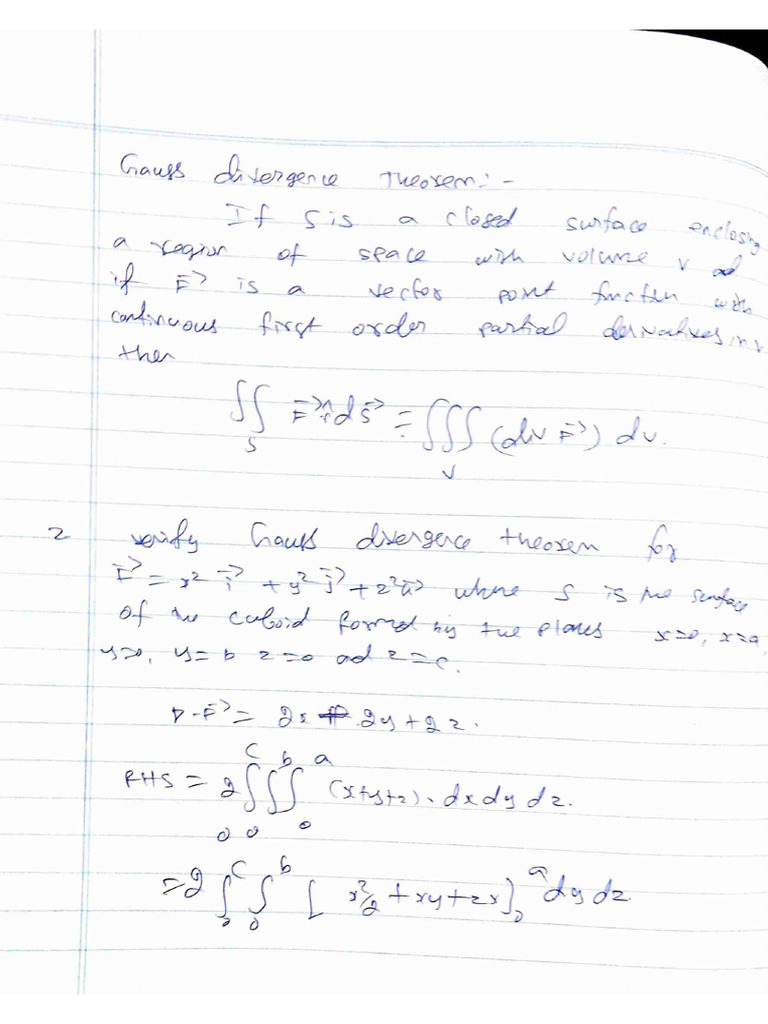 Gauss divergence Theorem:-
If S is a closed surface enclosing
a region of space with volume v ad
if F⃗ is a vector point function with
continuous first order partial derivatives in v
then
∬_S F⃗ n̂ dS⃗ = ∭_V (div F⃗) dv.
2 verify Gauss divergence theorem for
F⃗ = x² i⃗ + y² j⃗ + z² k⃗ where S is the surface
of the cuboid formed by the planes x=0, x=a,
y=0, y=b z=0 ad z=c.
∇·F⃗ = 2x + 2y + 2z.
RHS = 2 ∫₀^c ∫₀^b ∫₀^a (x+y+z). dx dy dz.
= 2 ∫₀^c ∫₀^b [x²/2 + xy + zx]₀^a dy dz